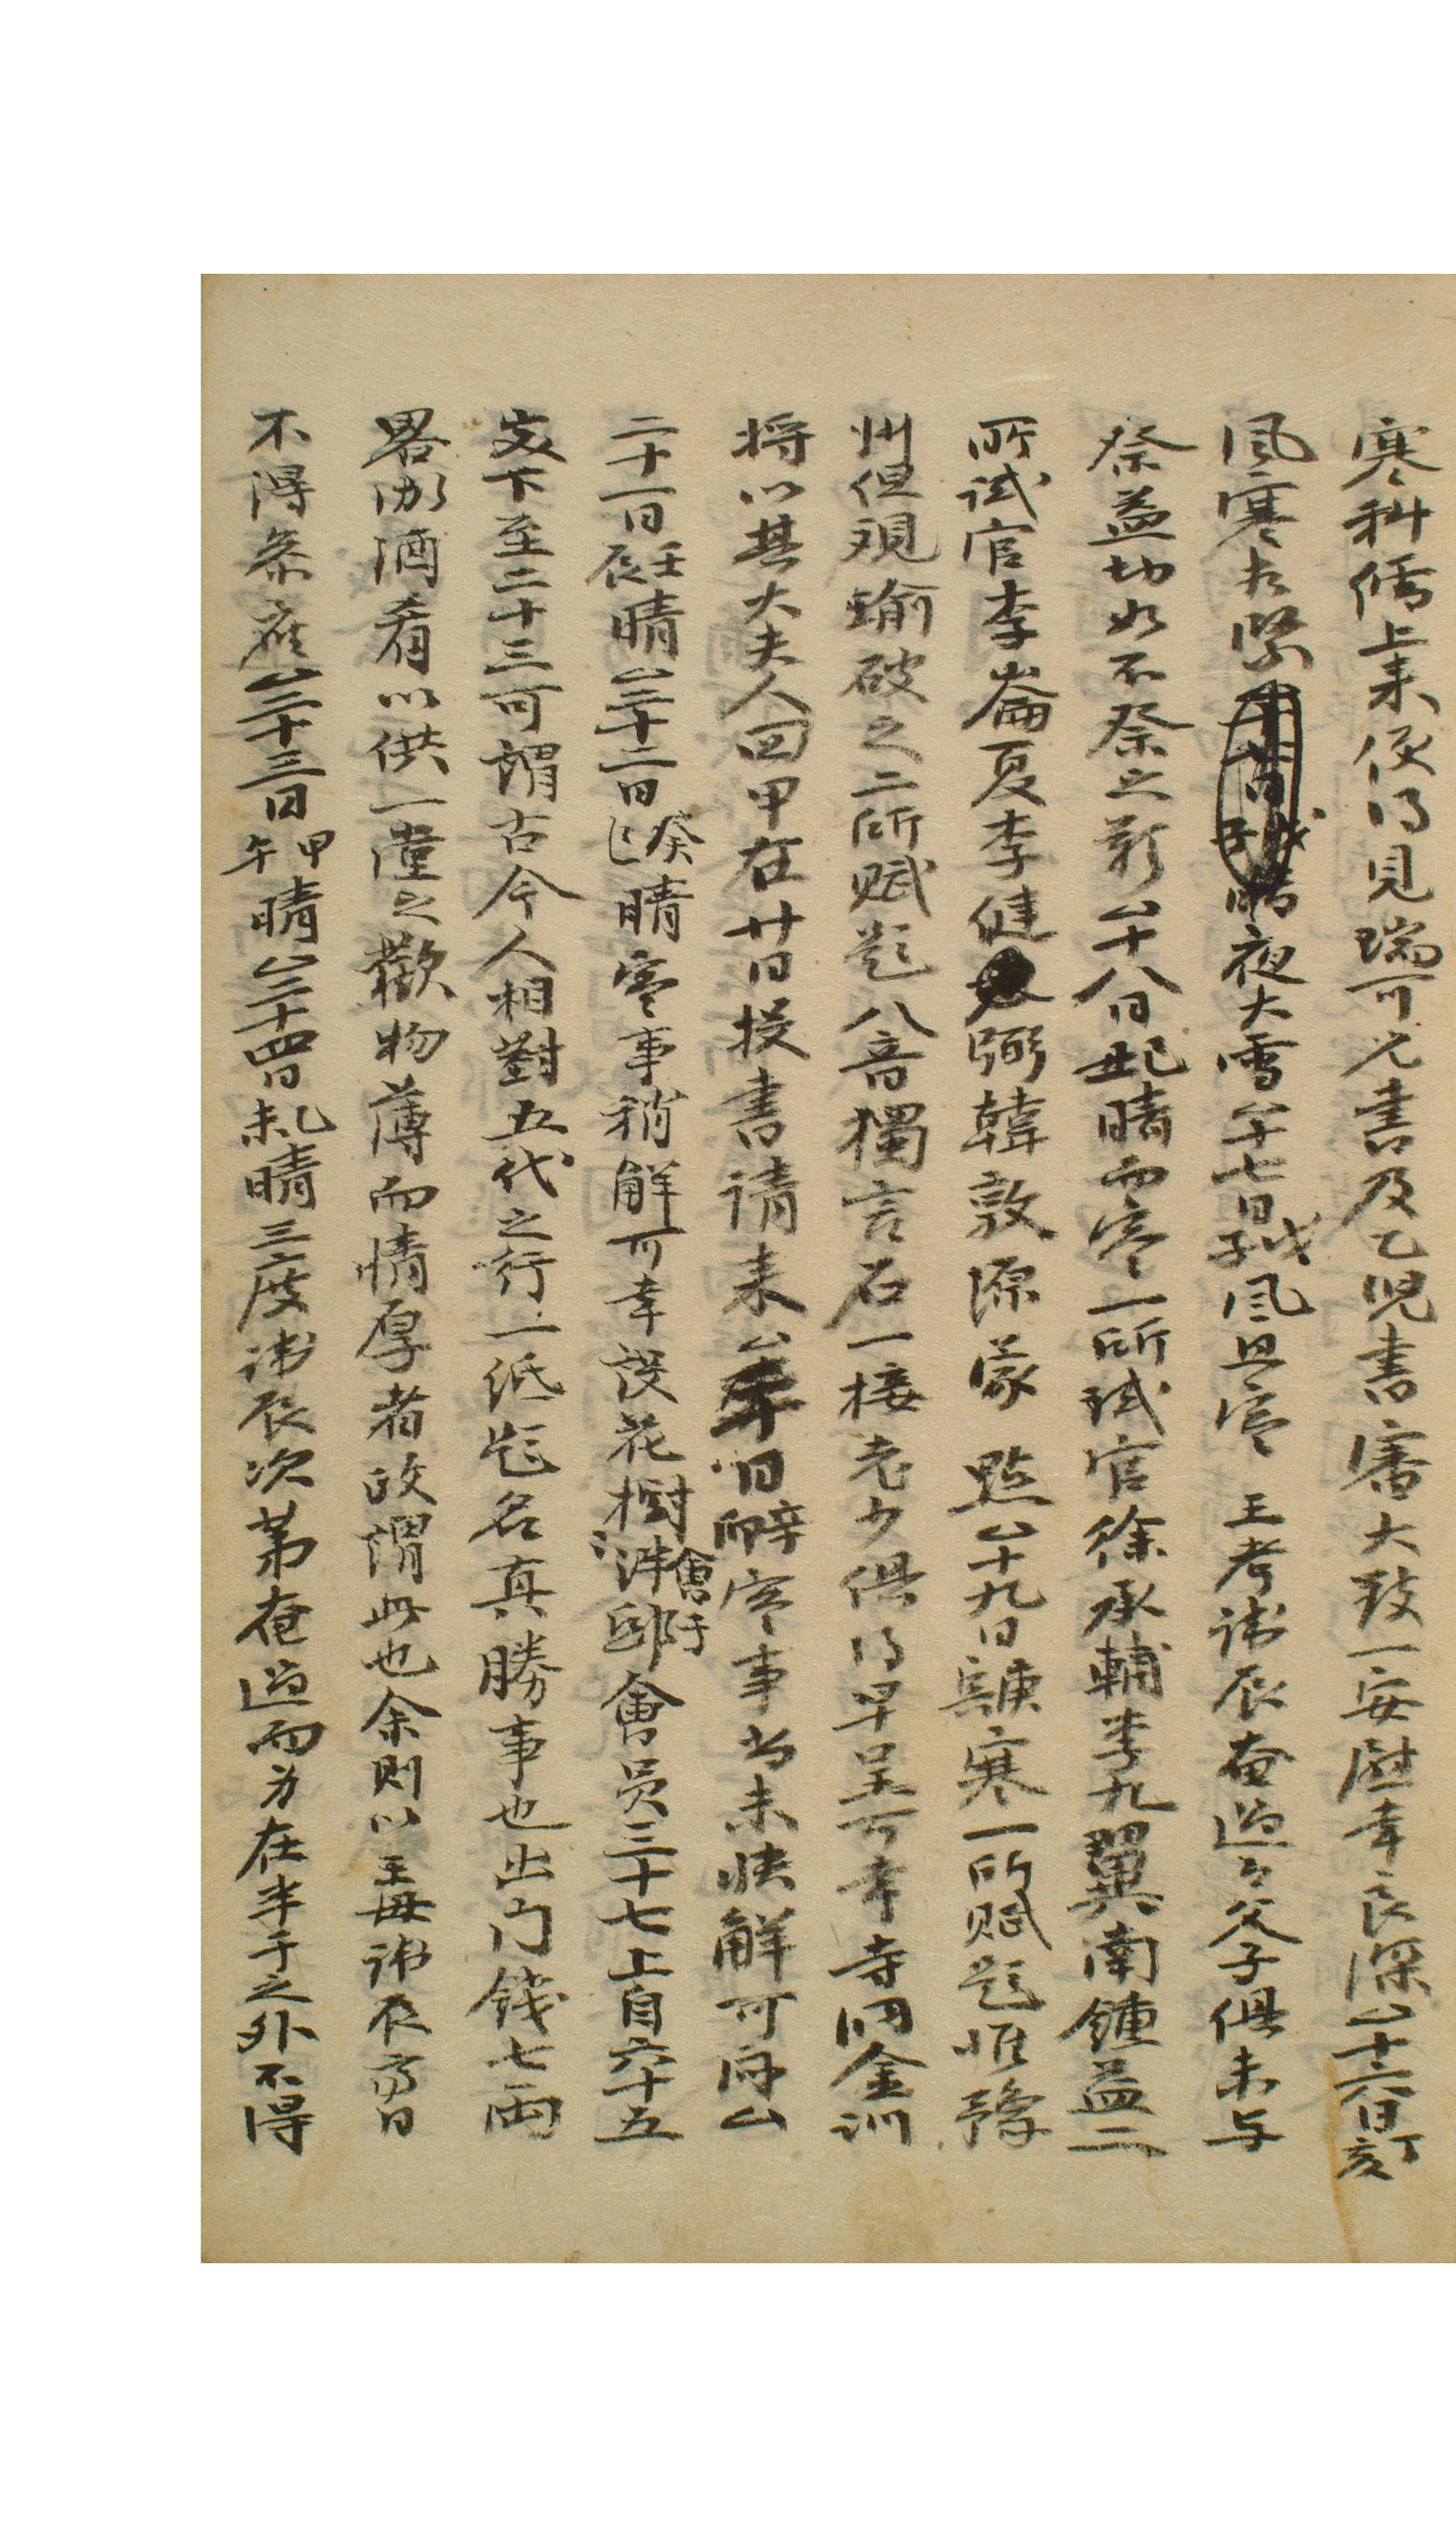 寒科儒上来便得見瑞可兄書及乙児書審大致一安慰幸良深△十六日丁亥
風寒太緊晴夜大雪△十七日戊子風且寒 王考諱辰奄過々父子俱未与
祭益切如不祭之歎△十八日己丑晴而寒一所試官徐承輔李九翼南鍾益二
所試官李崙夏李健弼韓敦源蒙 點△十九日庚寅寒一所賦題惟豫
州但現瑜破之二所賦題八音獨言石一接老少俱得早呈可幸寺洞金訓
将以其大夫人回甲在廿日投書請来△二十日辛卯寒事尚未快解可悶△
二十一日壬辰晴△二十二日癸巳晴寒事稍解可幸設花樹會于泮邸會員三十七上自六十五
歲下至二十三可謂古今人相對五代之行一紙題名真勝事也出門錢七両
畧沽酒肴以供一堂之歡物薄而情厚者政謂此也余則以王母諱辰齋日
不得参席△二十三日甲午晴△二十四日乙未晴三度諱辰次第奄過而身在半千之外不得